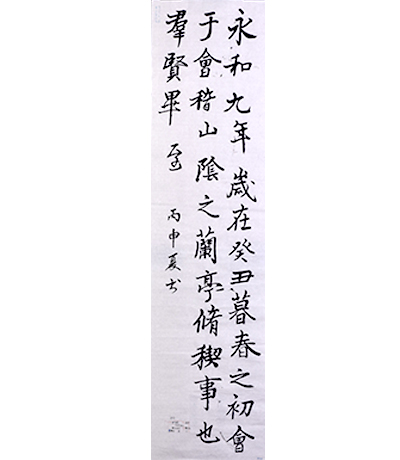 永和九年歲在癸丑暮春之初會
于會稽山陰之蘭亭脩稧事也
羣賢畢至 丙申夏書